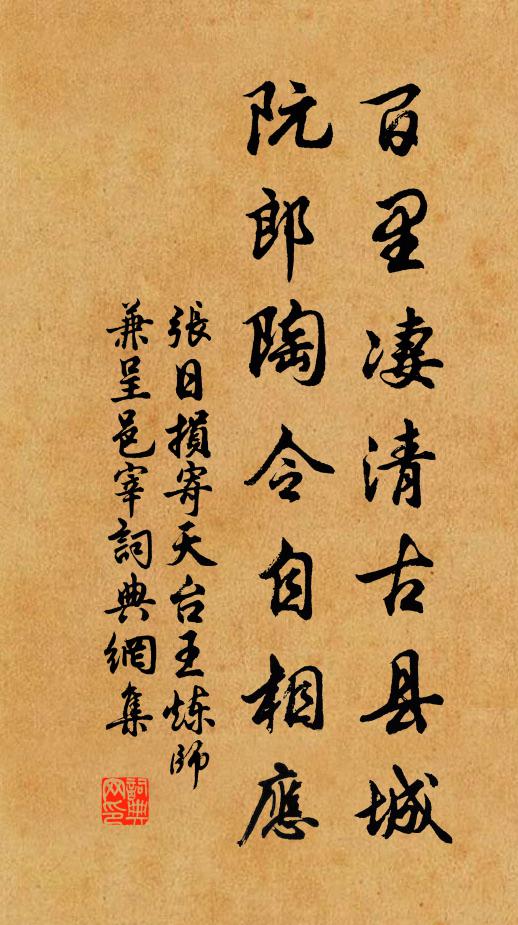 百里淒清古县城
阮郎陶令自相應
張日損寄天台王炼师
兼呈邑宰詞典網集
詞典网印